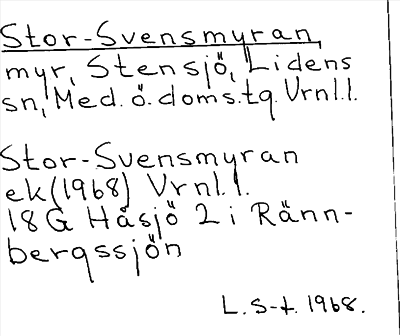 Stor-Svensmyran,
myr, Stensjö, Lidens
sn, Med. ö. doms.tg. Vrnl.l.
Stor-Svensmyran
ek (1968) Vrnl.l.
18 G Håsjö 2 i Ränn-
bergssjön
L. S-t. 1968.